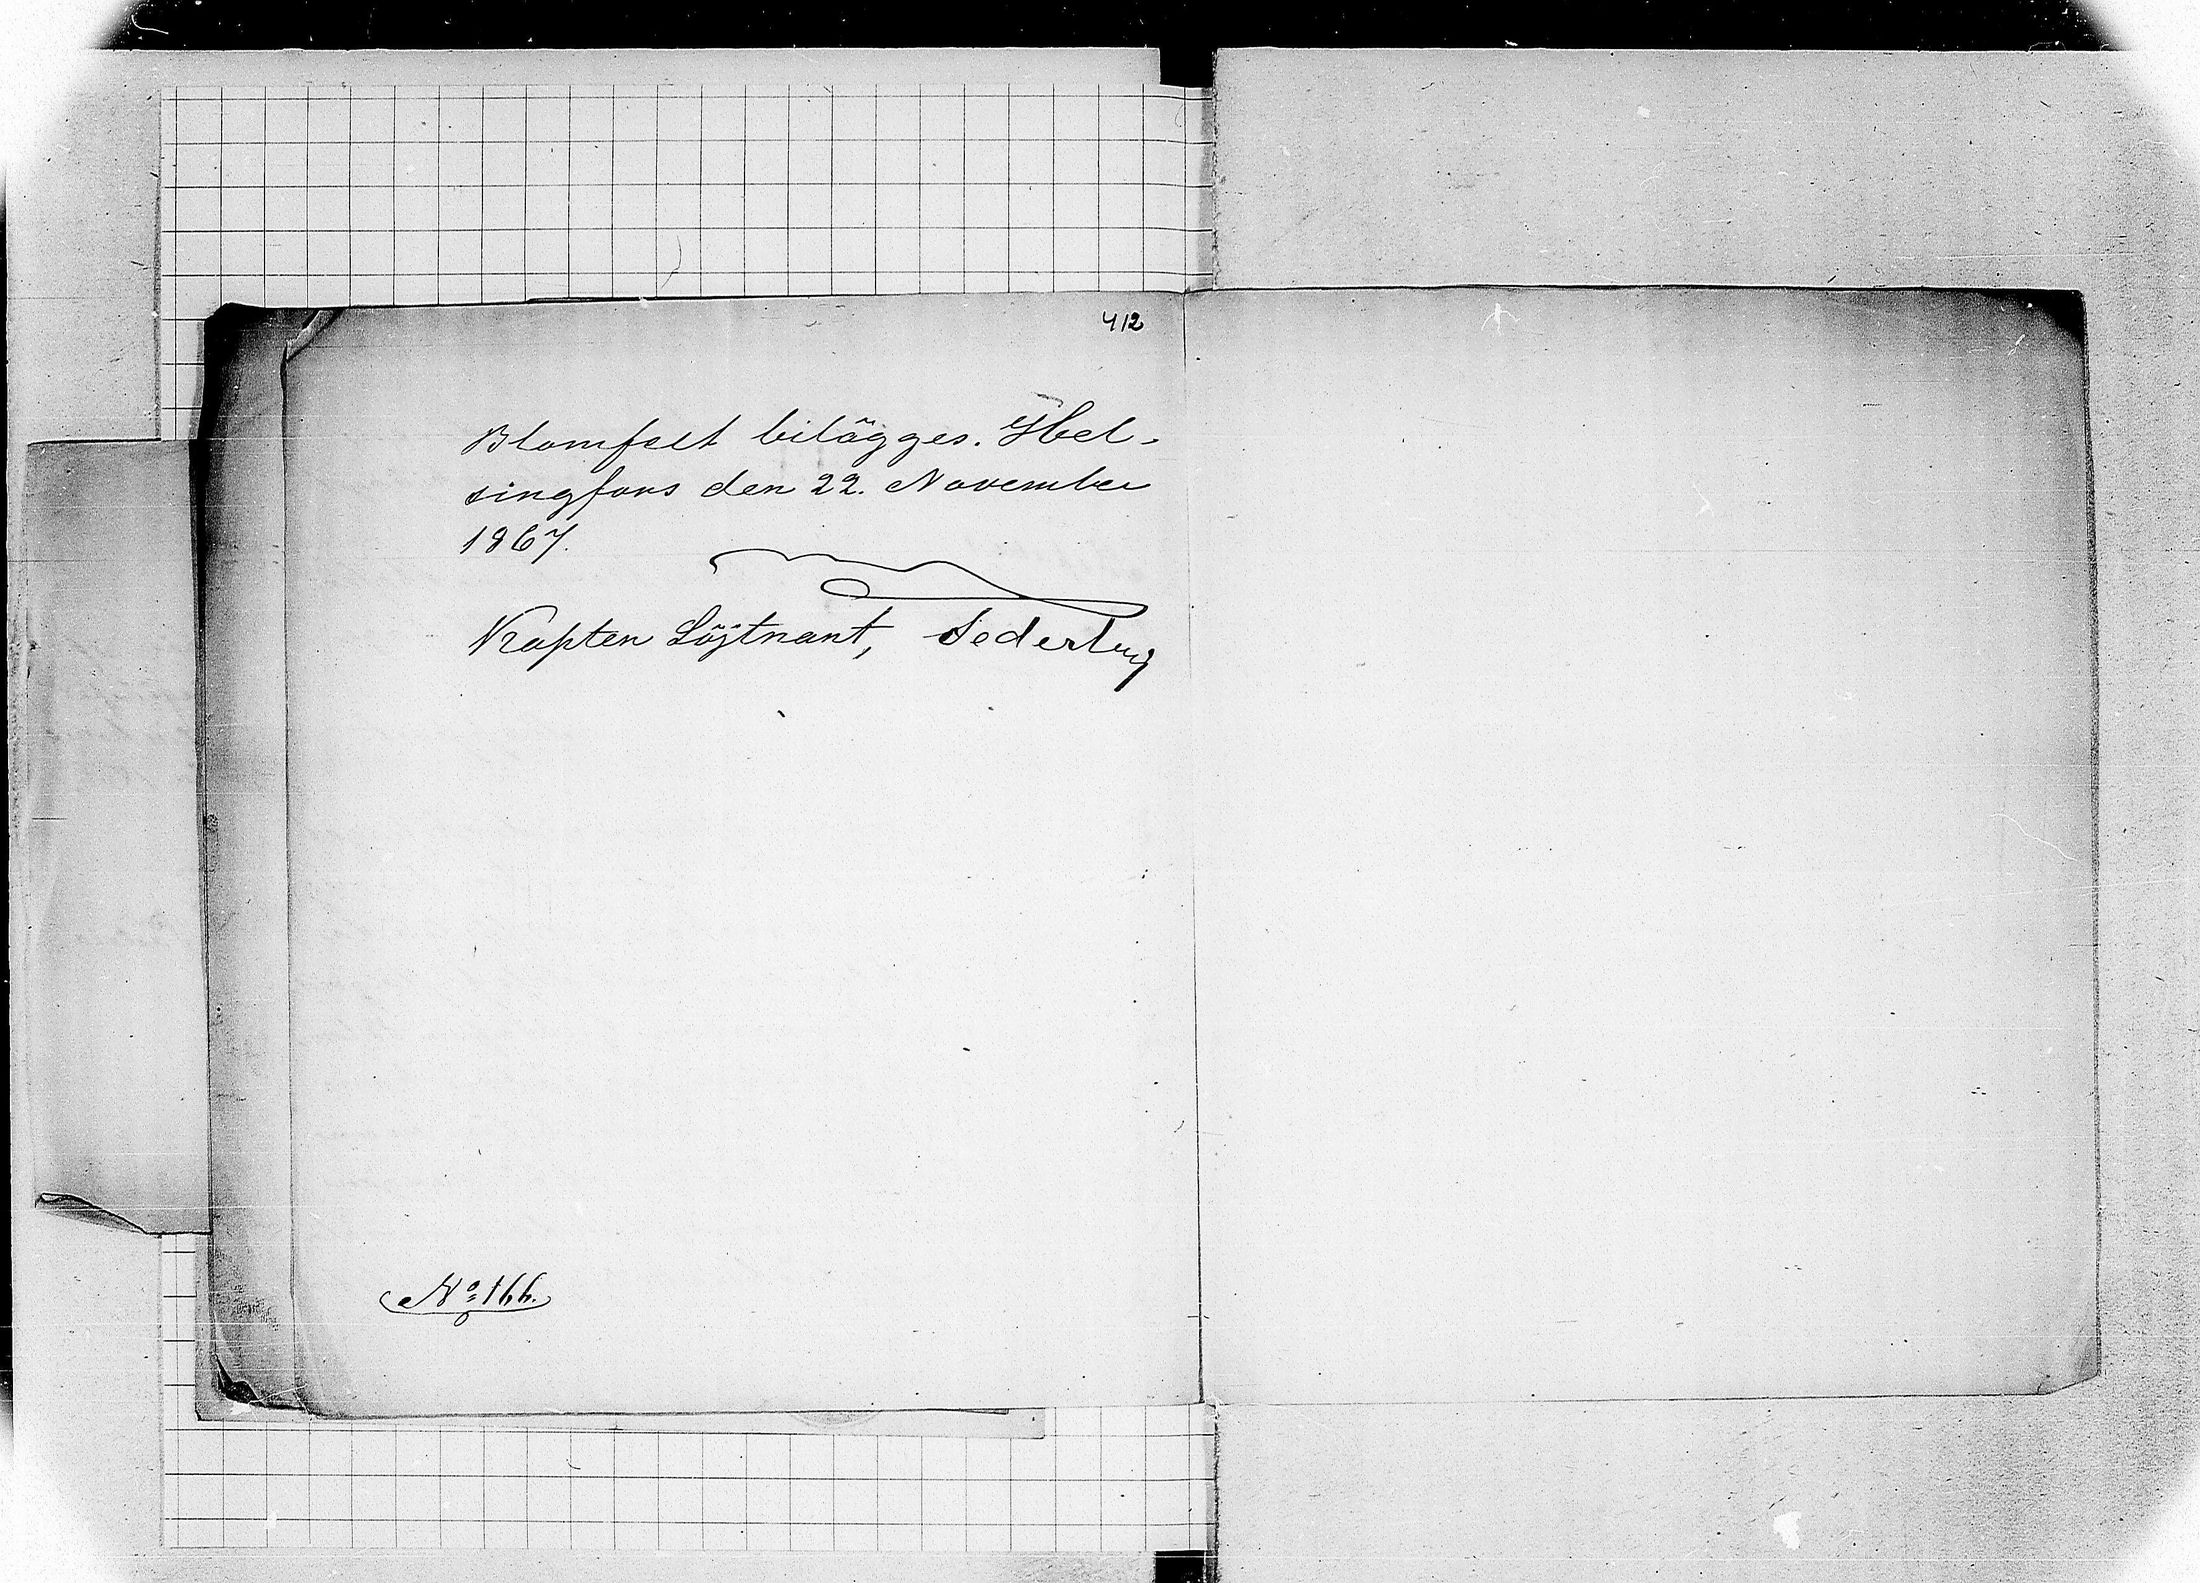 412
Blomfelt bilägges. Hel-
singfors den 22. November
1867.
Kapten Löjtnant, Sederberg
No 166.